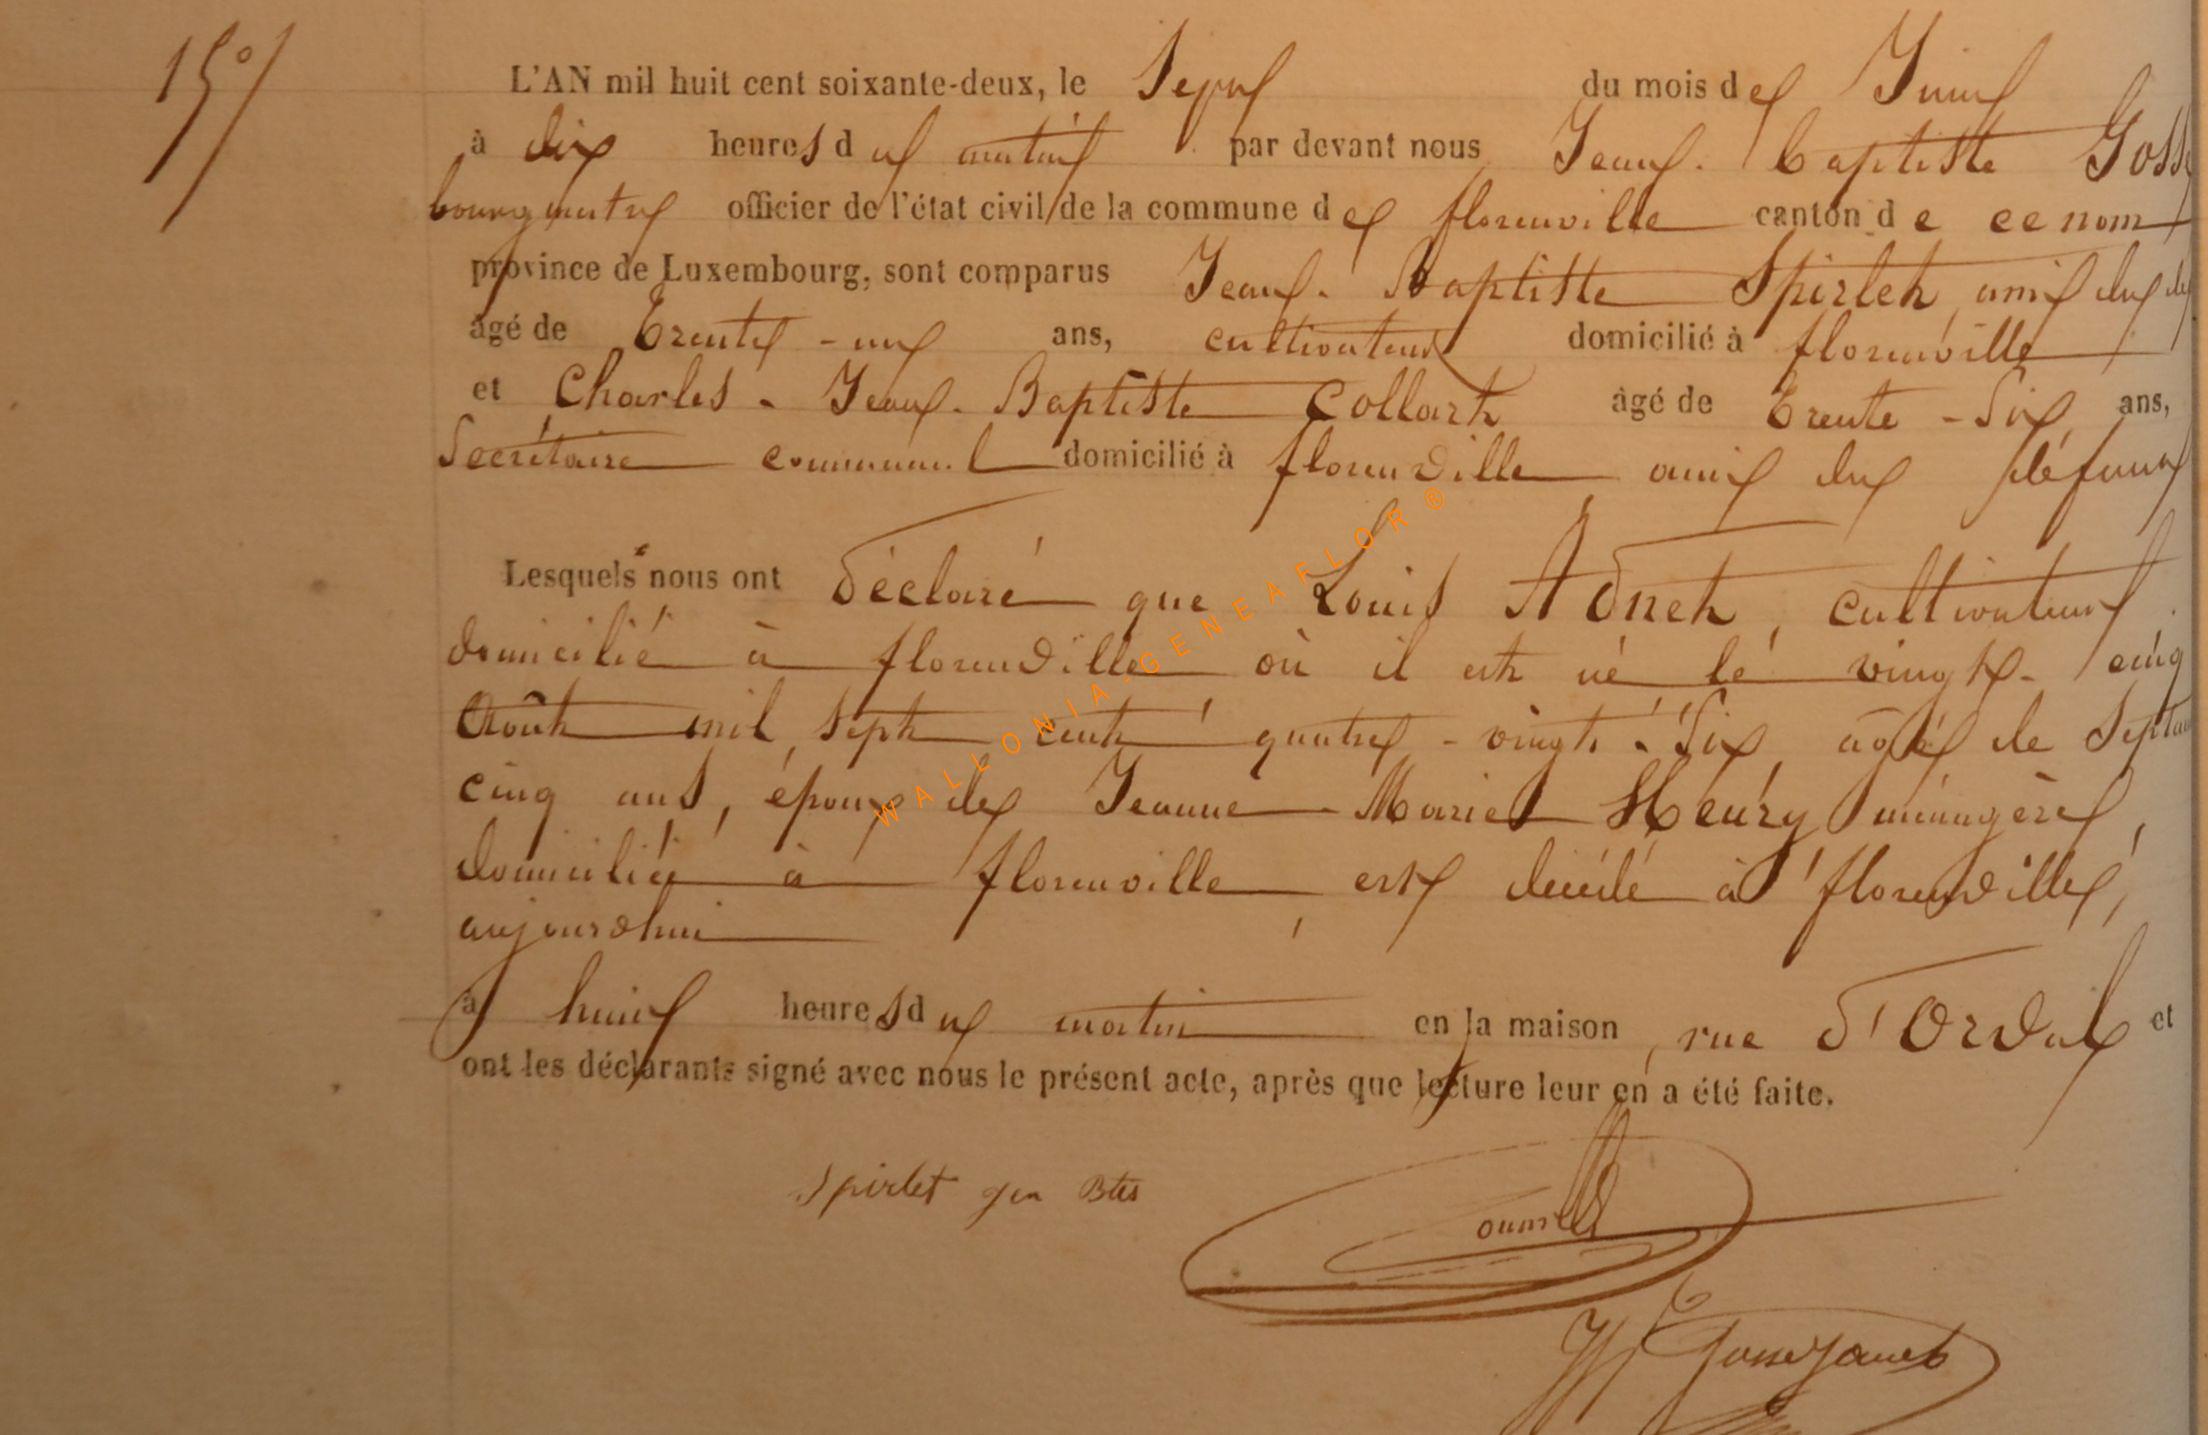 15°/
L'AN mil huit cent soixante-deux, le Sept du mois de Juin
à dix heures du matin par devant nous Jean-Baptiste Goss
bourgmestre officier de l'état civil de la commune de florenville canton de ce nom
province de Luxembourg, sont comparus Jean-Baptiste Spirlet, ami du
âgé de Trente-un ans, cultivateur domicilié à florenville
et Charles-Jean-Baptiste Collart âgé de Trente-Six ans,
Secrétaire communal domicilié à florenville amis du défunt
Lesquels nous ont déclaré que Louis Adnet, cultivateur
domicilié à florenville où il est né le vingt-cinq
Août mil sept cent quatre-vingt-Six, âgé de Septan
cinq ans, époux de Jeanne-Marie Henry ménagère,
domiciliée à florenville, est décédé à florenville,
aujourdhui
à huit heures du matin en la maison, rue d'Orval et
ont les déclarants signé avec nous le présent acte, après que lecture leur en a été faite.
Spirlet Jen Btes
WALLONIA-GENEAFLOR®